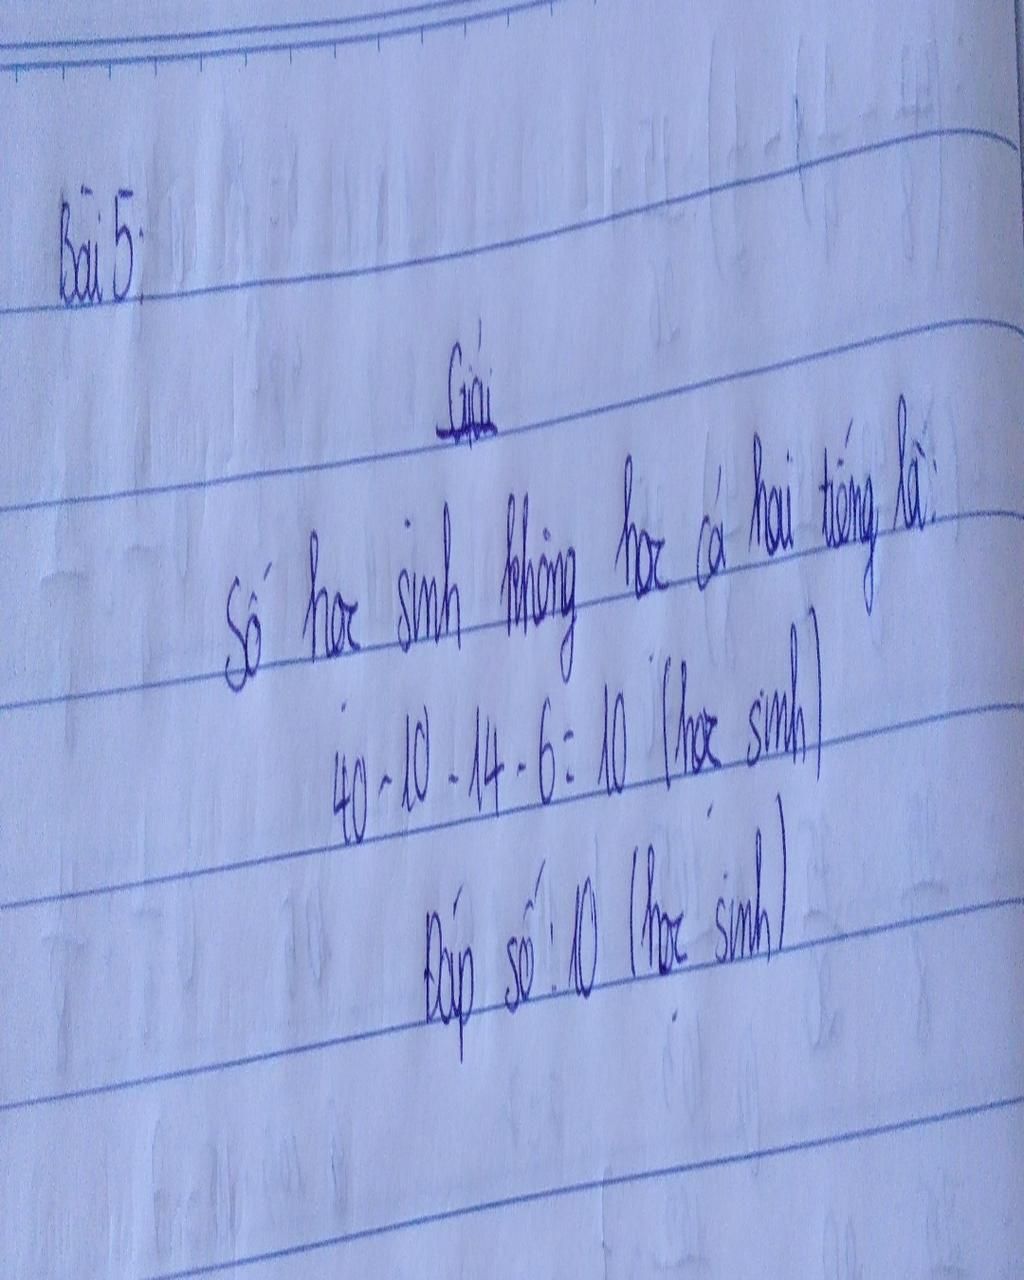 Bài 5:
Giải
Số học sinh không học cả hai tiếng là:
40 - 10 - 14 - 6 = 10 (học sinh)
Đáp số: 10 (học sinh)